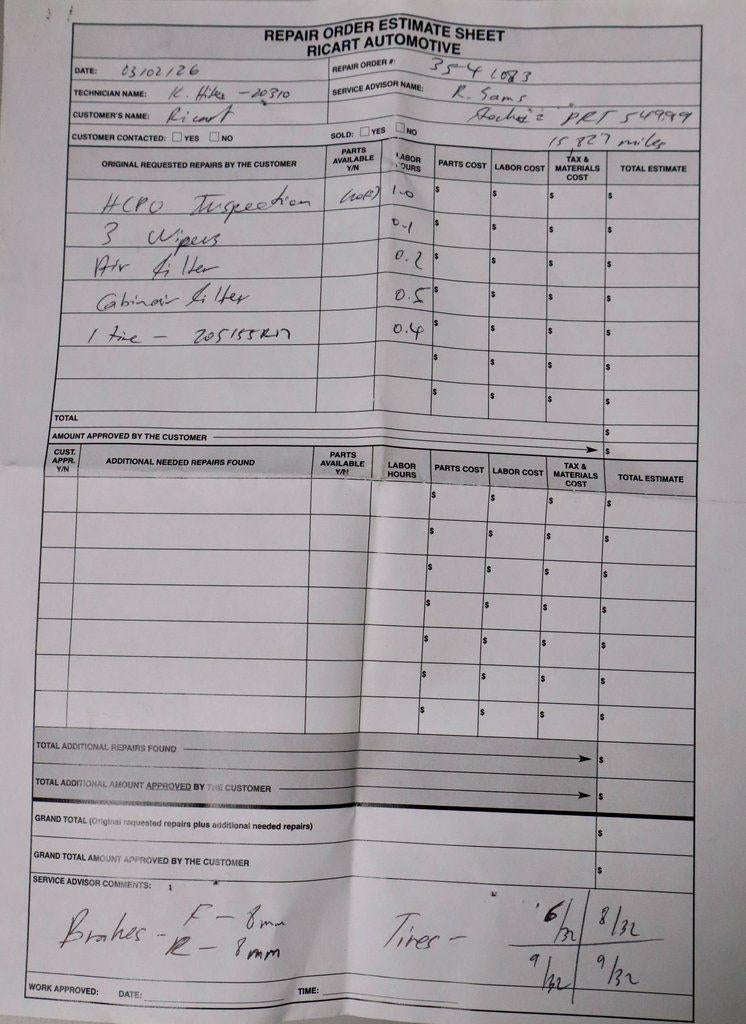 REPAIR ORDER ESTIMATE SHEET
RICART AUTOMOTIVE
DATE: 03/02/26
REPAIR ORDER #: 3541083
TECHNICIAN NAME: K. Hites - 20310
SERVICE ADVISOR NAME: R. Sams
CUSTOMER'S NAME: Ricart
Stock: PRT 54999
CUSTOMER CONTACTED: YES NO
SOLD: YES NO
15,827 miles
ORIGINAL REQUESTED REPAIRS BY THE CUSTOMER PARTS AVAILABLE Y/N LABOR HOURS PARTS COST LABOR COST TAX & MATERIALS COST TOTAL ESTIMATE
HCPO Inspection 1.0 $ $ $ $
3 Wipers 0.1 $ $ $ $
Air filter 0.2 $ $ $ $
Cabinair filter 0.5 $ $ $ $
1 tire - 205/55R17 0.4 $ $ $ $
$ $ $ $
$ $ $ $
TOTAL $
AMOUNT APPROVED BY THE CUSTOMER $
CUST. APPR. Y/N ADDITIONAL NEEDED REPAIRS FOUND PARTS AVAILABLE Y/N LABOR HOURS PARTS COST LABOR COST TAX & MATERIALS COST TOTAL ESTIMATE
$ $ $ $
$ $ $ $
$ $ $ $
$ $ $ $
$ $ $ $
$ $ $ $
$ $ $ $
TOTAL ADDITIONAL REPAIRS FOUND $
TOTAL ADDITIONAL AMOUNT APPROVED BY THE CUSTOMER $
GRAND TOTAL (Original requested repairs plus additional needed repairs) $
GRAND TOTAL AMOUNT APPROVED BY THE CUSTOMER $
SERVICE ADVISOR COMMENTS:
Brakes - F - 8mm
R - 8mm
Tires - 6/32 8/32
9/32 9/32
WORK APPROVED: DATE: TIME: